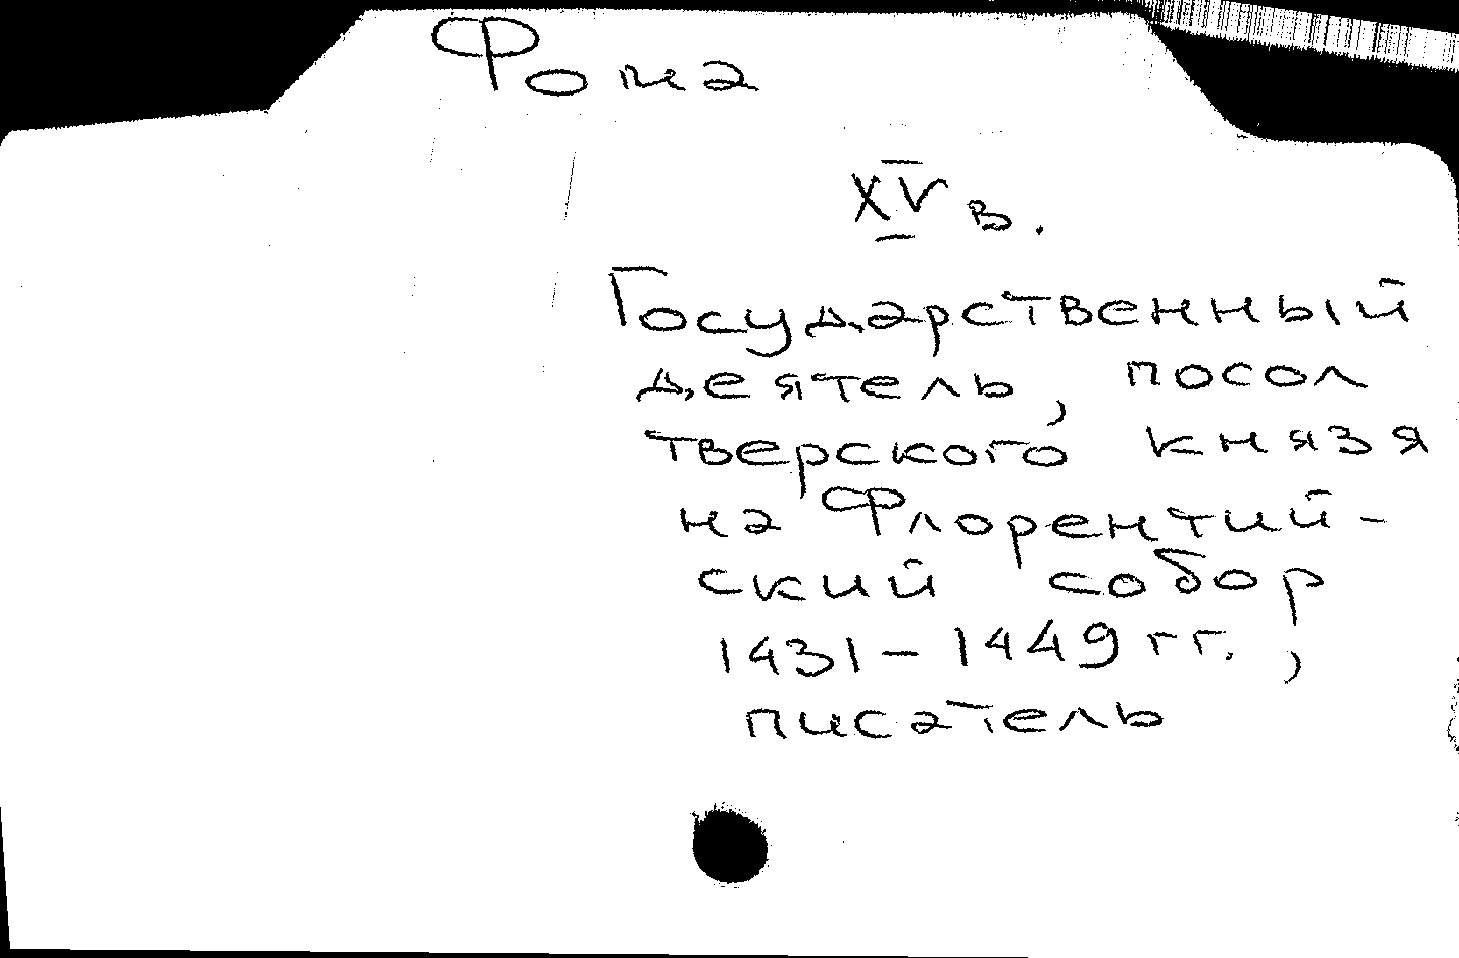 Фома
XV в.
Государственный
деятель, посол
тверского князя
на Флорентий-
ский собор
1431-1449 гг.,
писатель